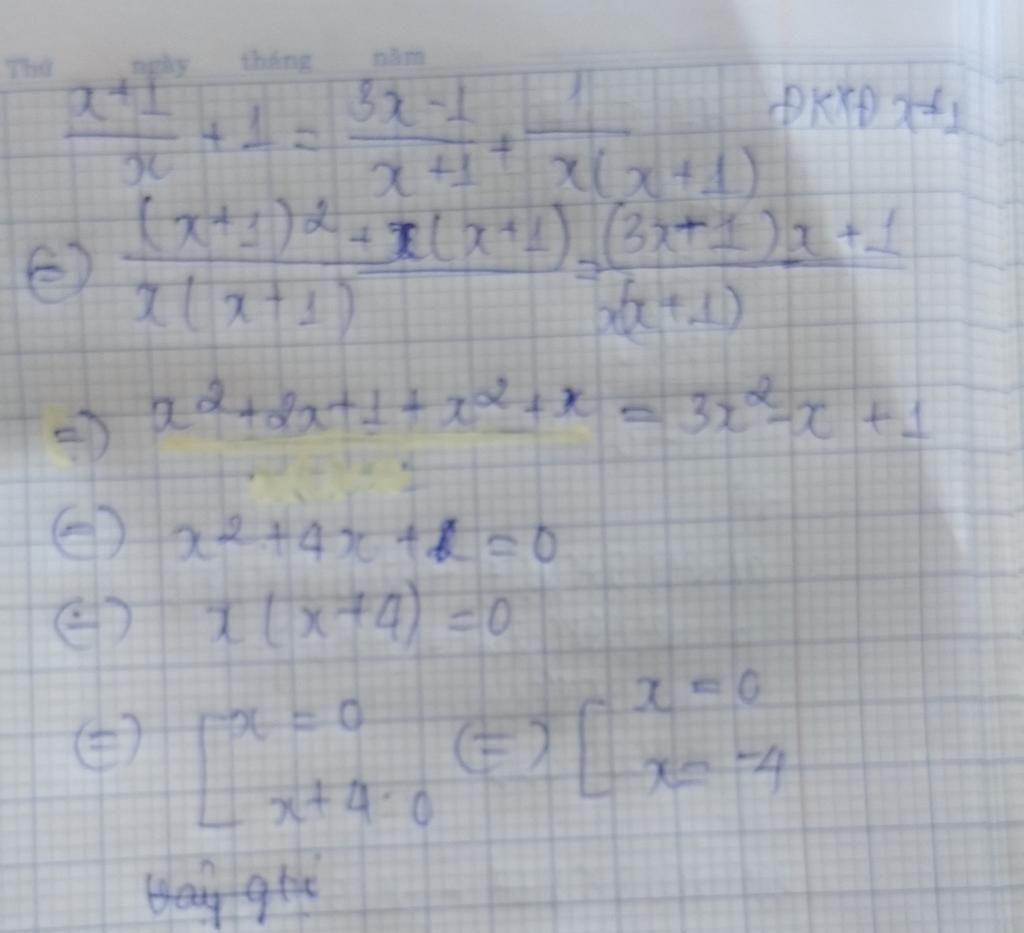 Thứ ngày tháng năm
\frac{x+1}{x} + 1 = \frac{3x-1}{x+1} + \frac{1}{x(x+1)} ĐKXĐ
(=) \frac{(x+1)^2 + x(x+1)}{x(x+1)} = \frac{(3x+1)x+1}{x(x+1)}
=) x^2+2x+1+x^2+x = 3x^2-x+1
(=) x^2+4x+1=0
(=) x(x+4)=0
(=) [x=0 (=) [x=0
x+4=0 x=-4